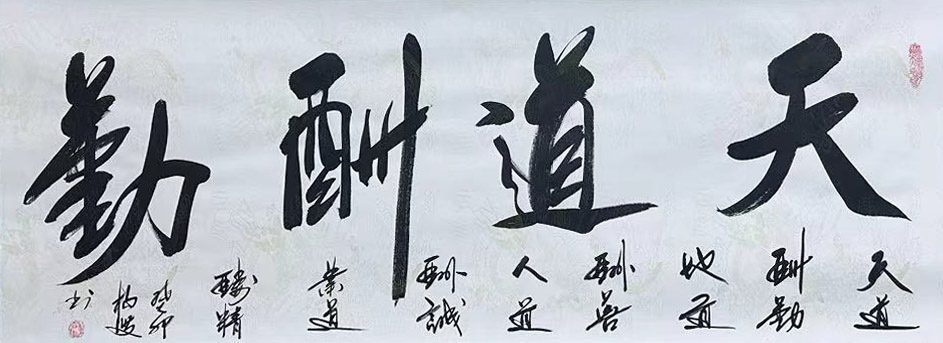 天道酬勤
天道
酬勤
地道
酬善
人道
酬誠
業道
酬精
癸卯
书